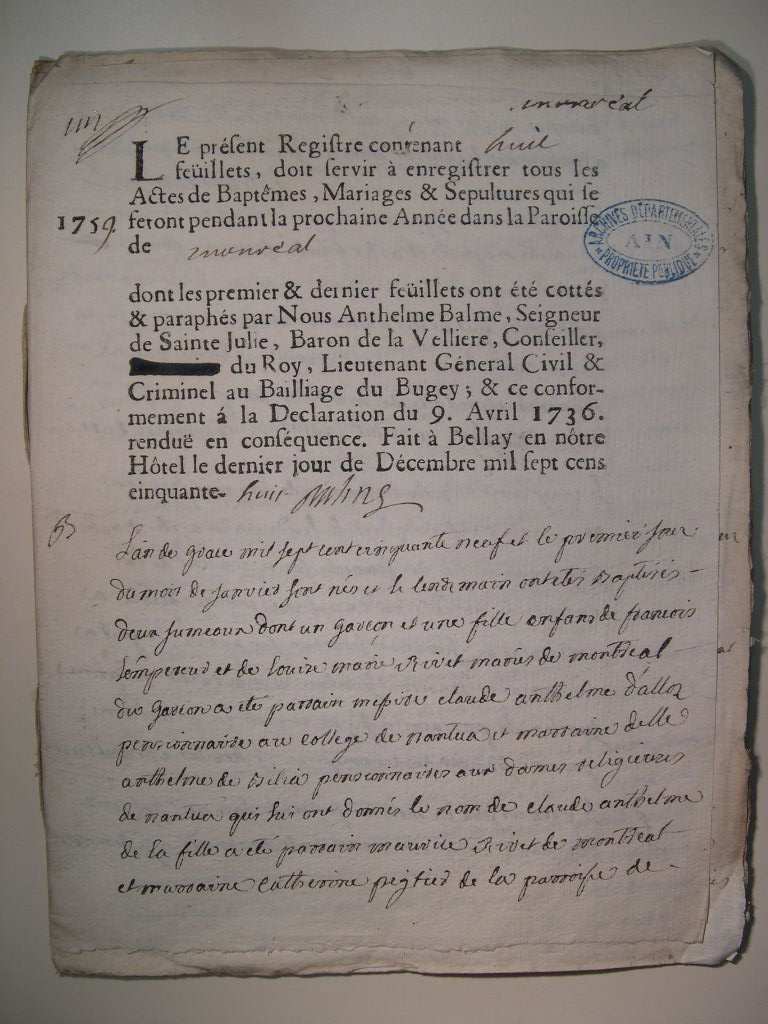 monreal
LE présent Registre contenant huit
feüillets, doit servir à enregistrer tous les
Actes de Baptêmes, Mariages & Sepultures qui se
1759. feront pendant la prochaine Année dans la Paroisse
de monreal
ARCHIVES DÉPARTEMENTALES
AIN
PROPRIÉTÉ PUBLIQUE
dont les premier & dernier feüillets ont été cottés
& paraphés par Nous Anthelme Balme, Seigneur
de Sainte Julie, Baron de la Velliere, Conseiller,
du Roy, Lieutenant Général Civil &
Criminel au Bailliage du Bugey; & ce confor-
mement á la Declaration du 9. Avril 1736.
renduë en conséquence. Fait à Bellay en nôtre
Hôtel le dernier jour de Décembre mil sept cens
einquante- huit
B
L'an de grace mil sept cent cinquante neuf et le premier jour
du mois de janvier sont nés et le lendemain ont etés baptisés
deux jumeaux dont un garçon et une fille enfans de francois
Lempereur et de Louise marie Rivet mariés de montreal
du garcon a eté parrain messire claude anthelme d'alloz
pensionnaire au college de nantua et marraine delle
anthelme de pensionnaires aux dames religieuses
de nantua qui lui ont donnés le nom de claude anthelme
de la fille a eté parrain maurice Rivet de montreal
et marraine Catherine de la parroisse de